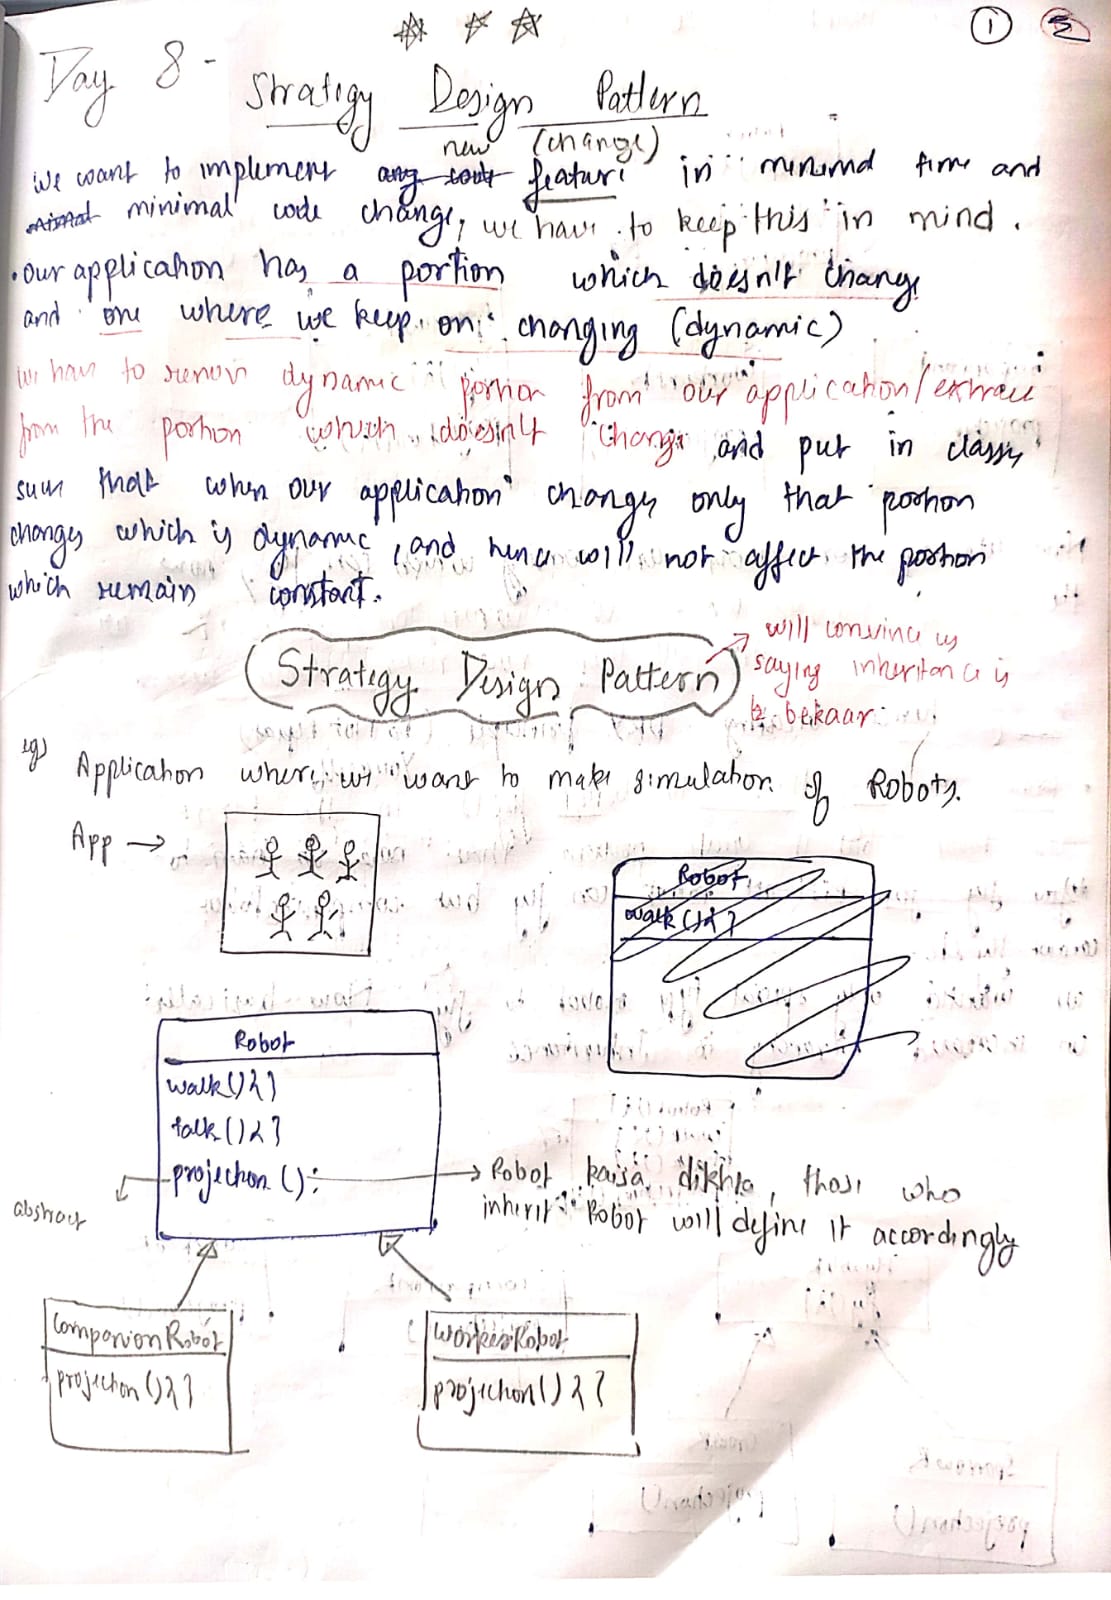 1
Day 8 -
Strategy Design Pattern
new (change)
we want to implement any code feature in minimal time and
minimal code change, we have to keep this in mind.
• our application has a portion which doesn't change
and one where we keep on changing (dynamic)
we have to remove dynamic portion from our application/extract
from the portion which doesn't change and put in classes
such that when our application changes only that portion
changes which is dynamic, and hence will not affect the portion
which remain constant.
Strategy Design Pattern
will convince us
saying inheritance is
bekaar.
eg) Application where we want to make simulation of Robots.
App →
Robot
walk(){}
Robot
walk(){}
talk(){}
projection();
abstract
Robot kaisa dikhta, those who
inherit Robot will define it accordingly
CompanionRobot
projection(){}
WorkerRobot
projection(){}